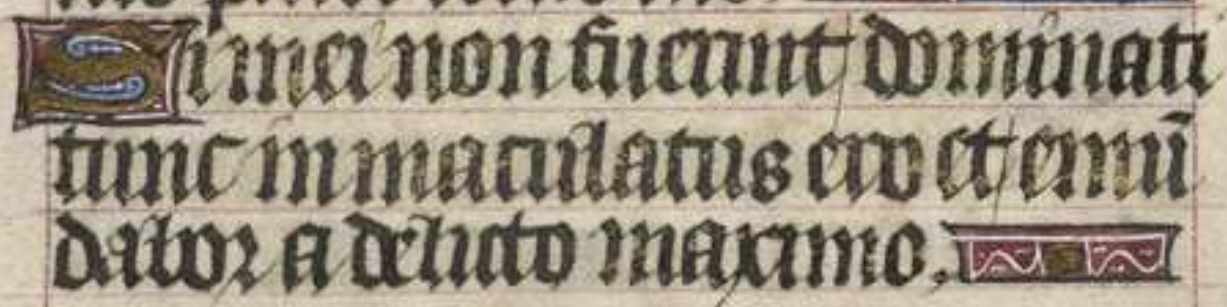 Si mei non fuerint dominati
tunc inmaculatus ero et emū
dabor a delicto maximo.